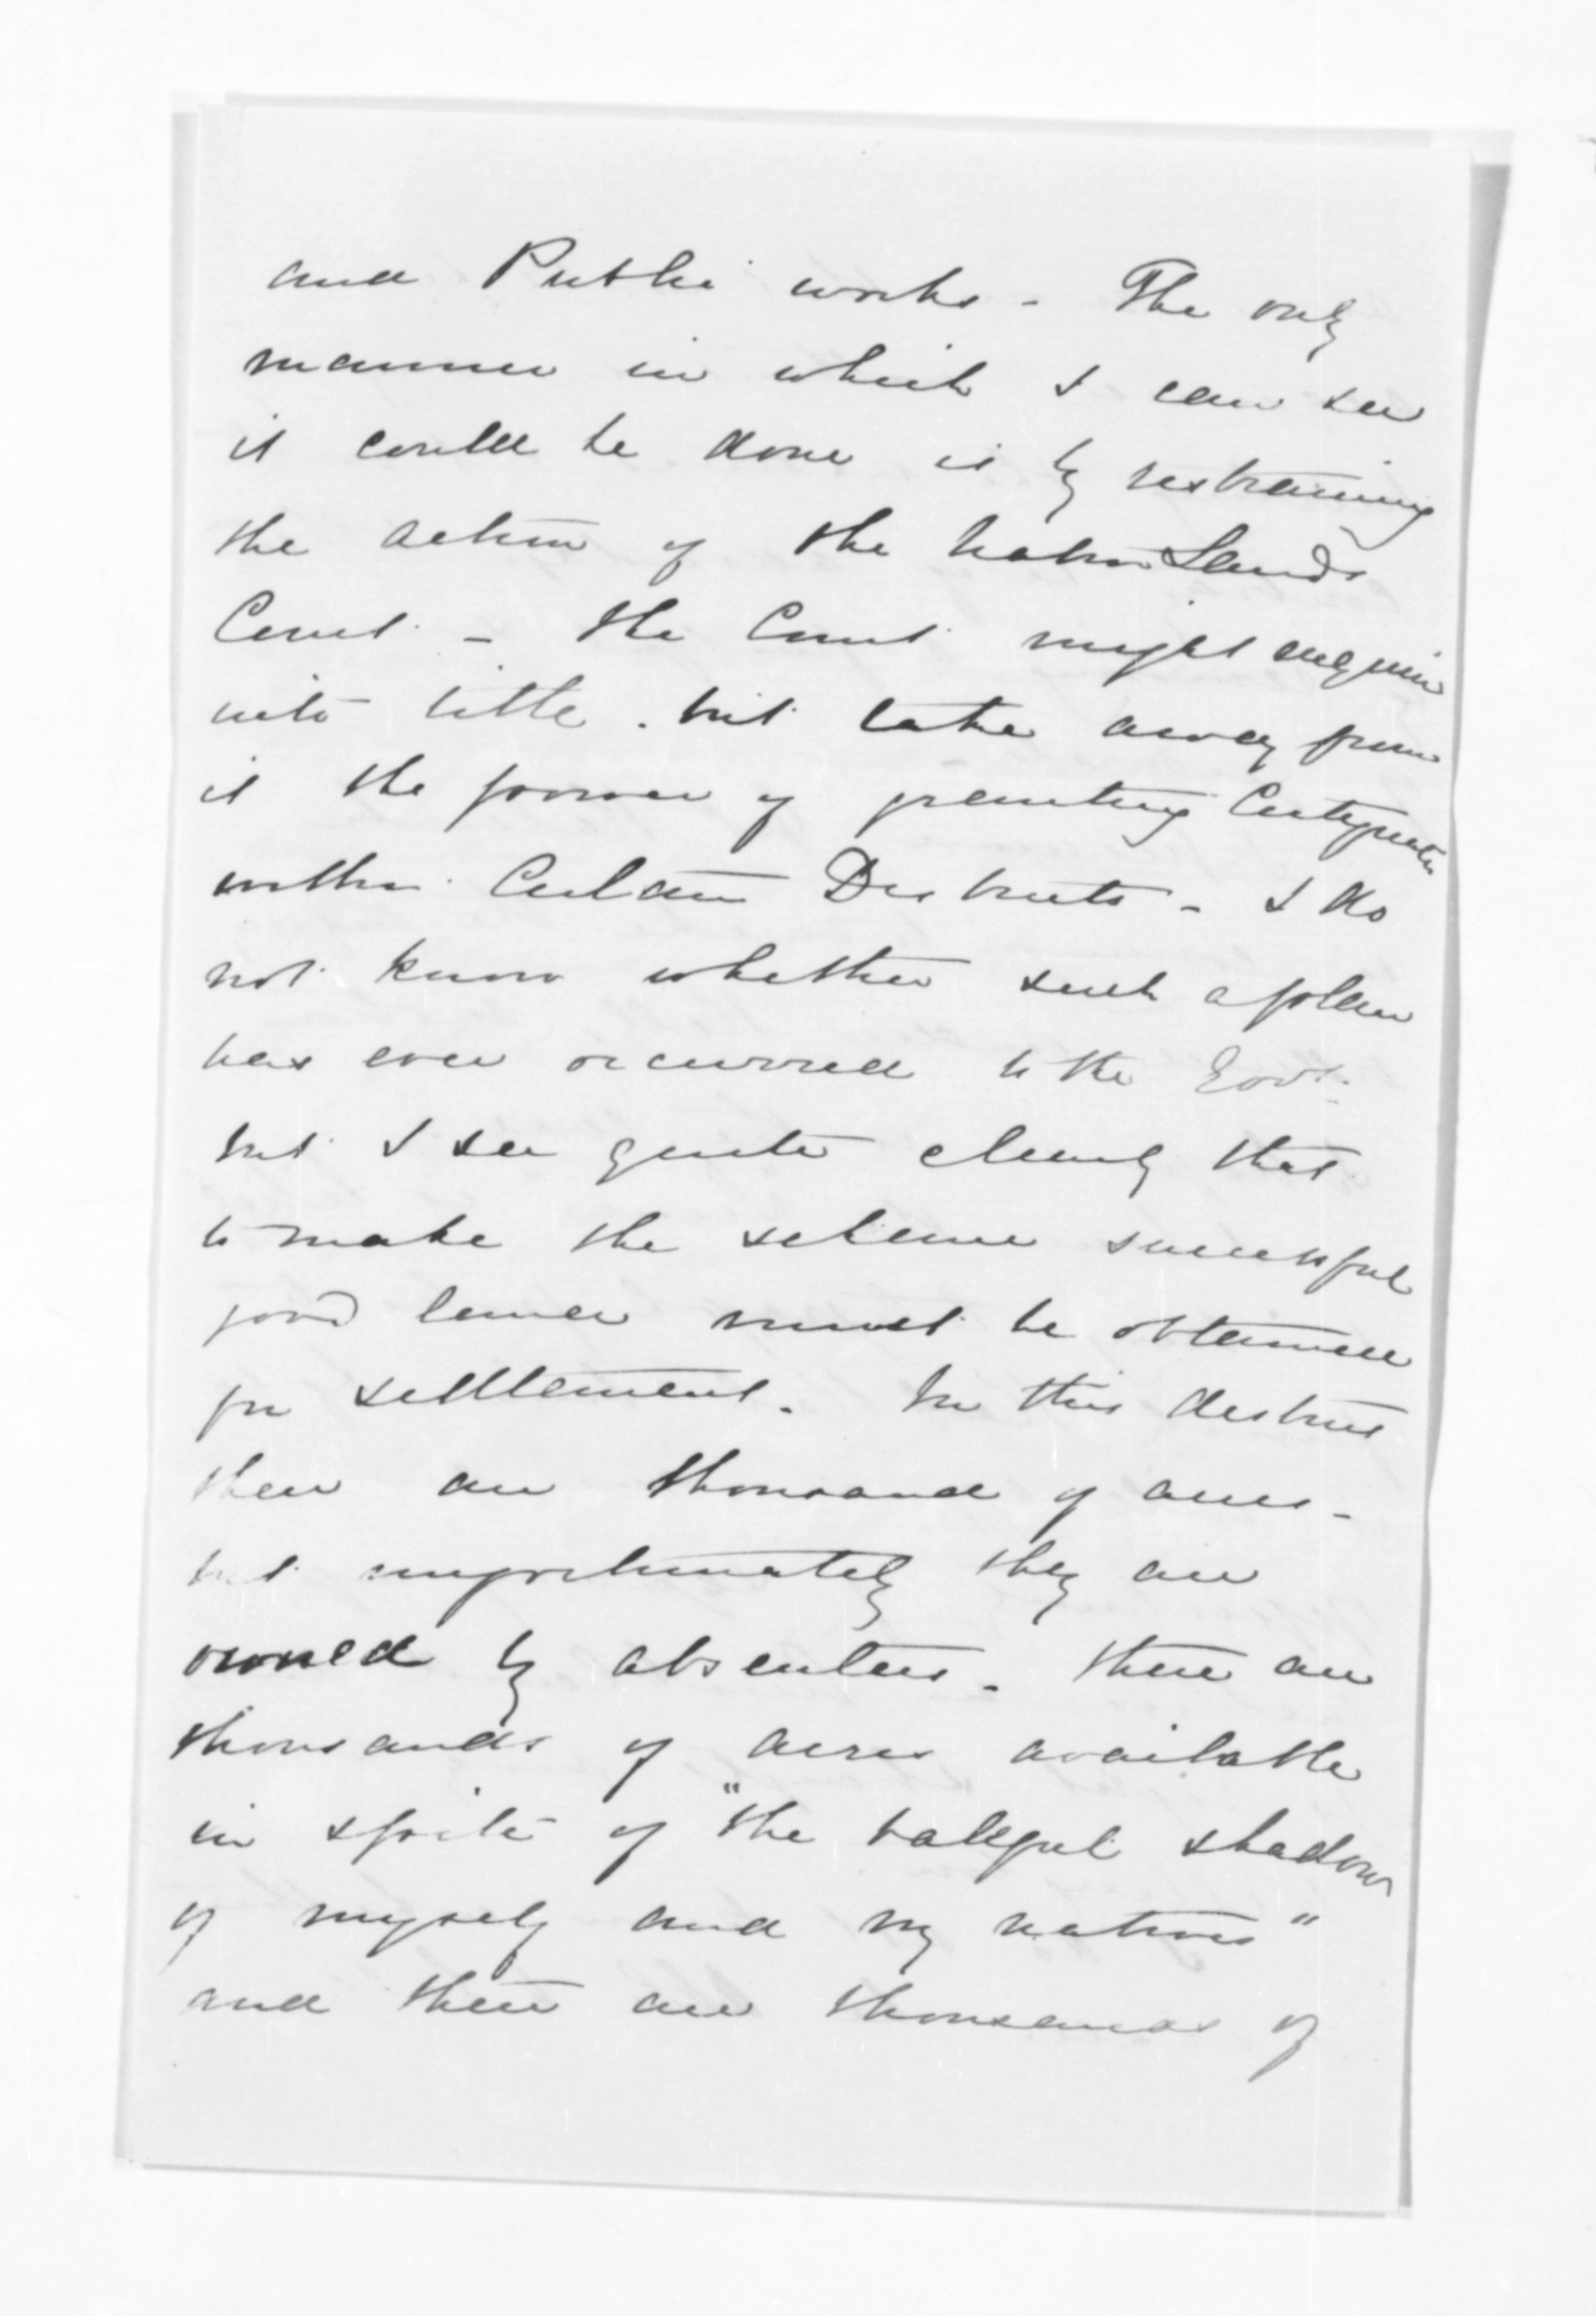 and Public works - The only
manner in which I can see
it could be done is by restraining
the action of the Native Lands
Court. - The Court might enquire
into title . but take away from
it the power of granting Certificates
within Certain Districts - I do
not know whether such a plan
has ever occurred to the Govt.
but I see quite clearly that
to make the scheme successful
good land must be obtained
for settlement. In this district
there are thousand of acres -
but unfortunately they are
owned by absentees - There are
thousands of acres available
in spite of "the baleful shadow
of myself and my natives"
and there are thousands of